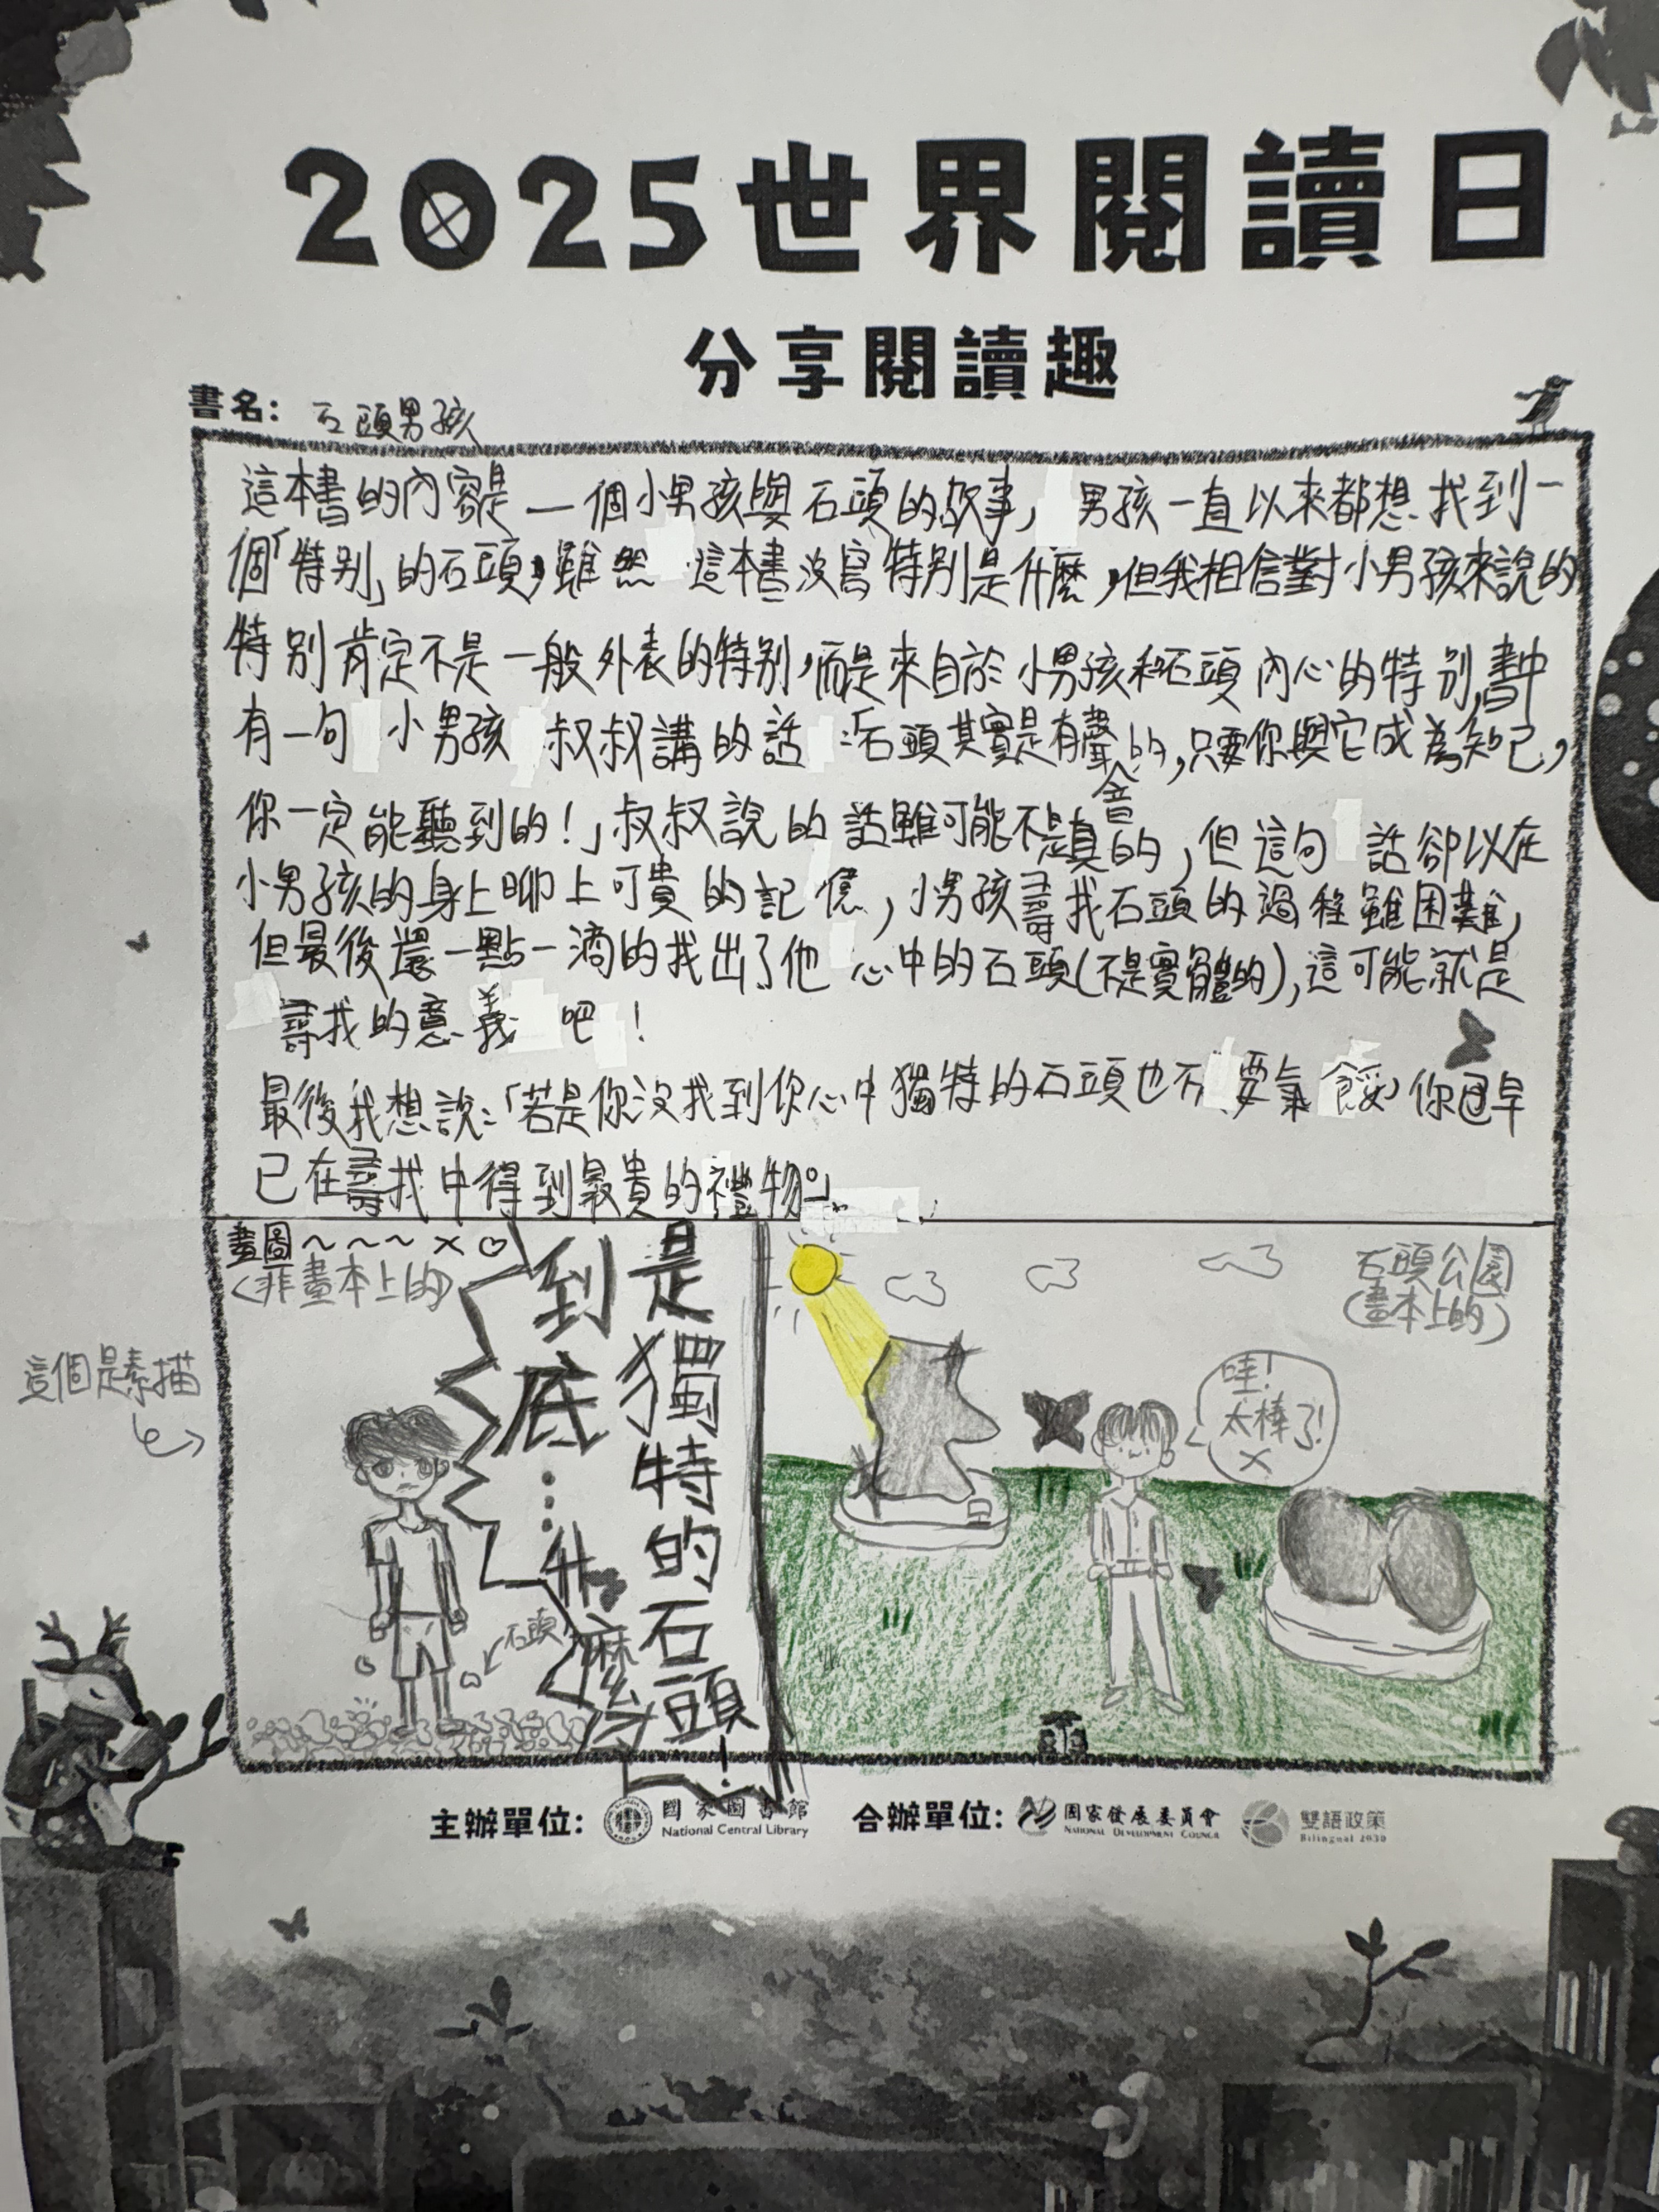 2025世界閱讀日
分享閱讀趣
書名：石頭男孩
這本書的內容是一個小男孩與石頭的故事，男孩一直以來都想找到一
個「特別」的石頭，雖然這本書沒寫特別是什麼，但我相信對小男孩來說的
特別肯定不是一般外表的特別，而是來自於小男孩和石頭內心的特別，書中
有一句小男孩叔叔講的話：「石頭其實是有聲音的，只要你與它成為知己，
你一定能聽到的！」叔叔說的話雖可能不是真的，但這句話卻以在
小男孩的身上聊上可貴的記憶，小男孩尋找石頭的過程雖困難，
但最後還一點一滴的找出了他心中的石頭(不是實體的)，這可能就是
尋找的意義吧！
最後我想說：「若是你沒找到你心中獨特的石頭也不要氣餒，你早
已在尋找中得到最貴的禮物。」
畫圖～～～×♡
(非畫本上的)
這個是素描
到底……什麼
是獨特的石頭！
石頭
石頭公園
(畫本上的)
哇！
太棒了！
主辦單位：國家圖書館
National Central Library
合辦單位：國家發展委員會
NATIONAL DEVELOPMENT COUNCIL
雙語政策
Bilingual 2030